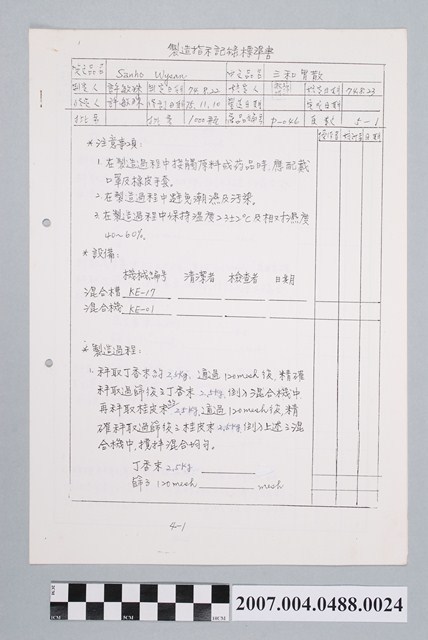 製造指示記錄標準書
英文品名 Sanho Wysan 中文品名 三和胃散
制定人 許敏珠 制定日期 74.8.22 核定人 核定日期 74.8.23
修定人 許敏珠 修訂日期 75.11.10 製造日期 完成日期
批號 批量 1000瓶 藥品編號 P-046 頁數 5-1
操作者 核對者 日期
*注意事項:
1. 在製造過程中接觸原料或药品時, 應配戴
口罩及橡皮手套。
2. 在製造過程中避免潮濕及汚染。
3. 在製造過程中保持溫度23±2℃及相对濕度
40~60%。
*設備:
機械編號 清潔者 檢查者 日期
混合槽 KE-17
混合機 KE-01
*製造過程:
1. 秤取丁香末約2.5kg, 通過120mesh後, 精確
秤取過篩後之丁香末2.5kg, 倒入混合機中,
再秤取桂皮末約2.5kg, 通過120mesh後, 精
確秤取過篩後之桂皮末2.5kg, 倒入上述之混
合機中, 攪拌混合均勻。
丁香末2.5kg
篩号120mesh mesh
4-1
2007.004.0488.0024